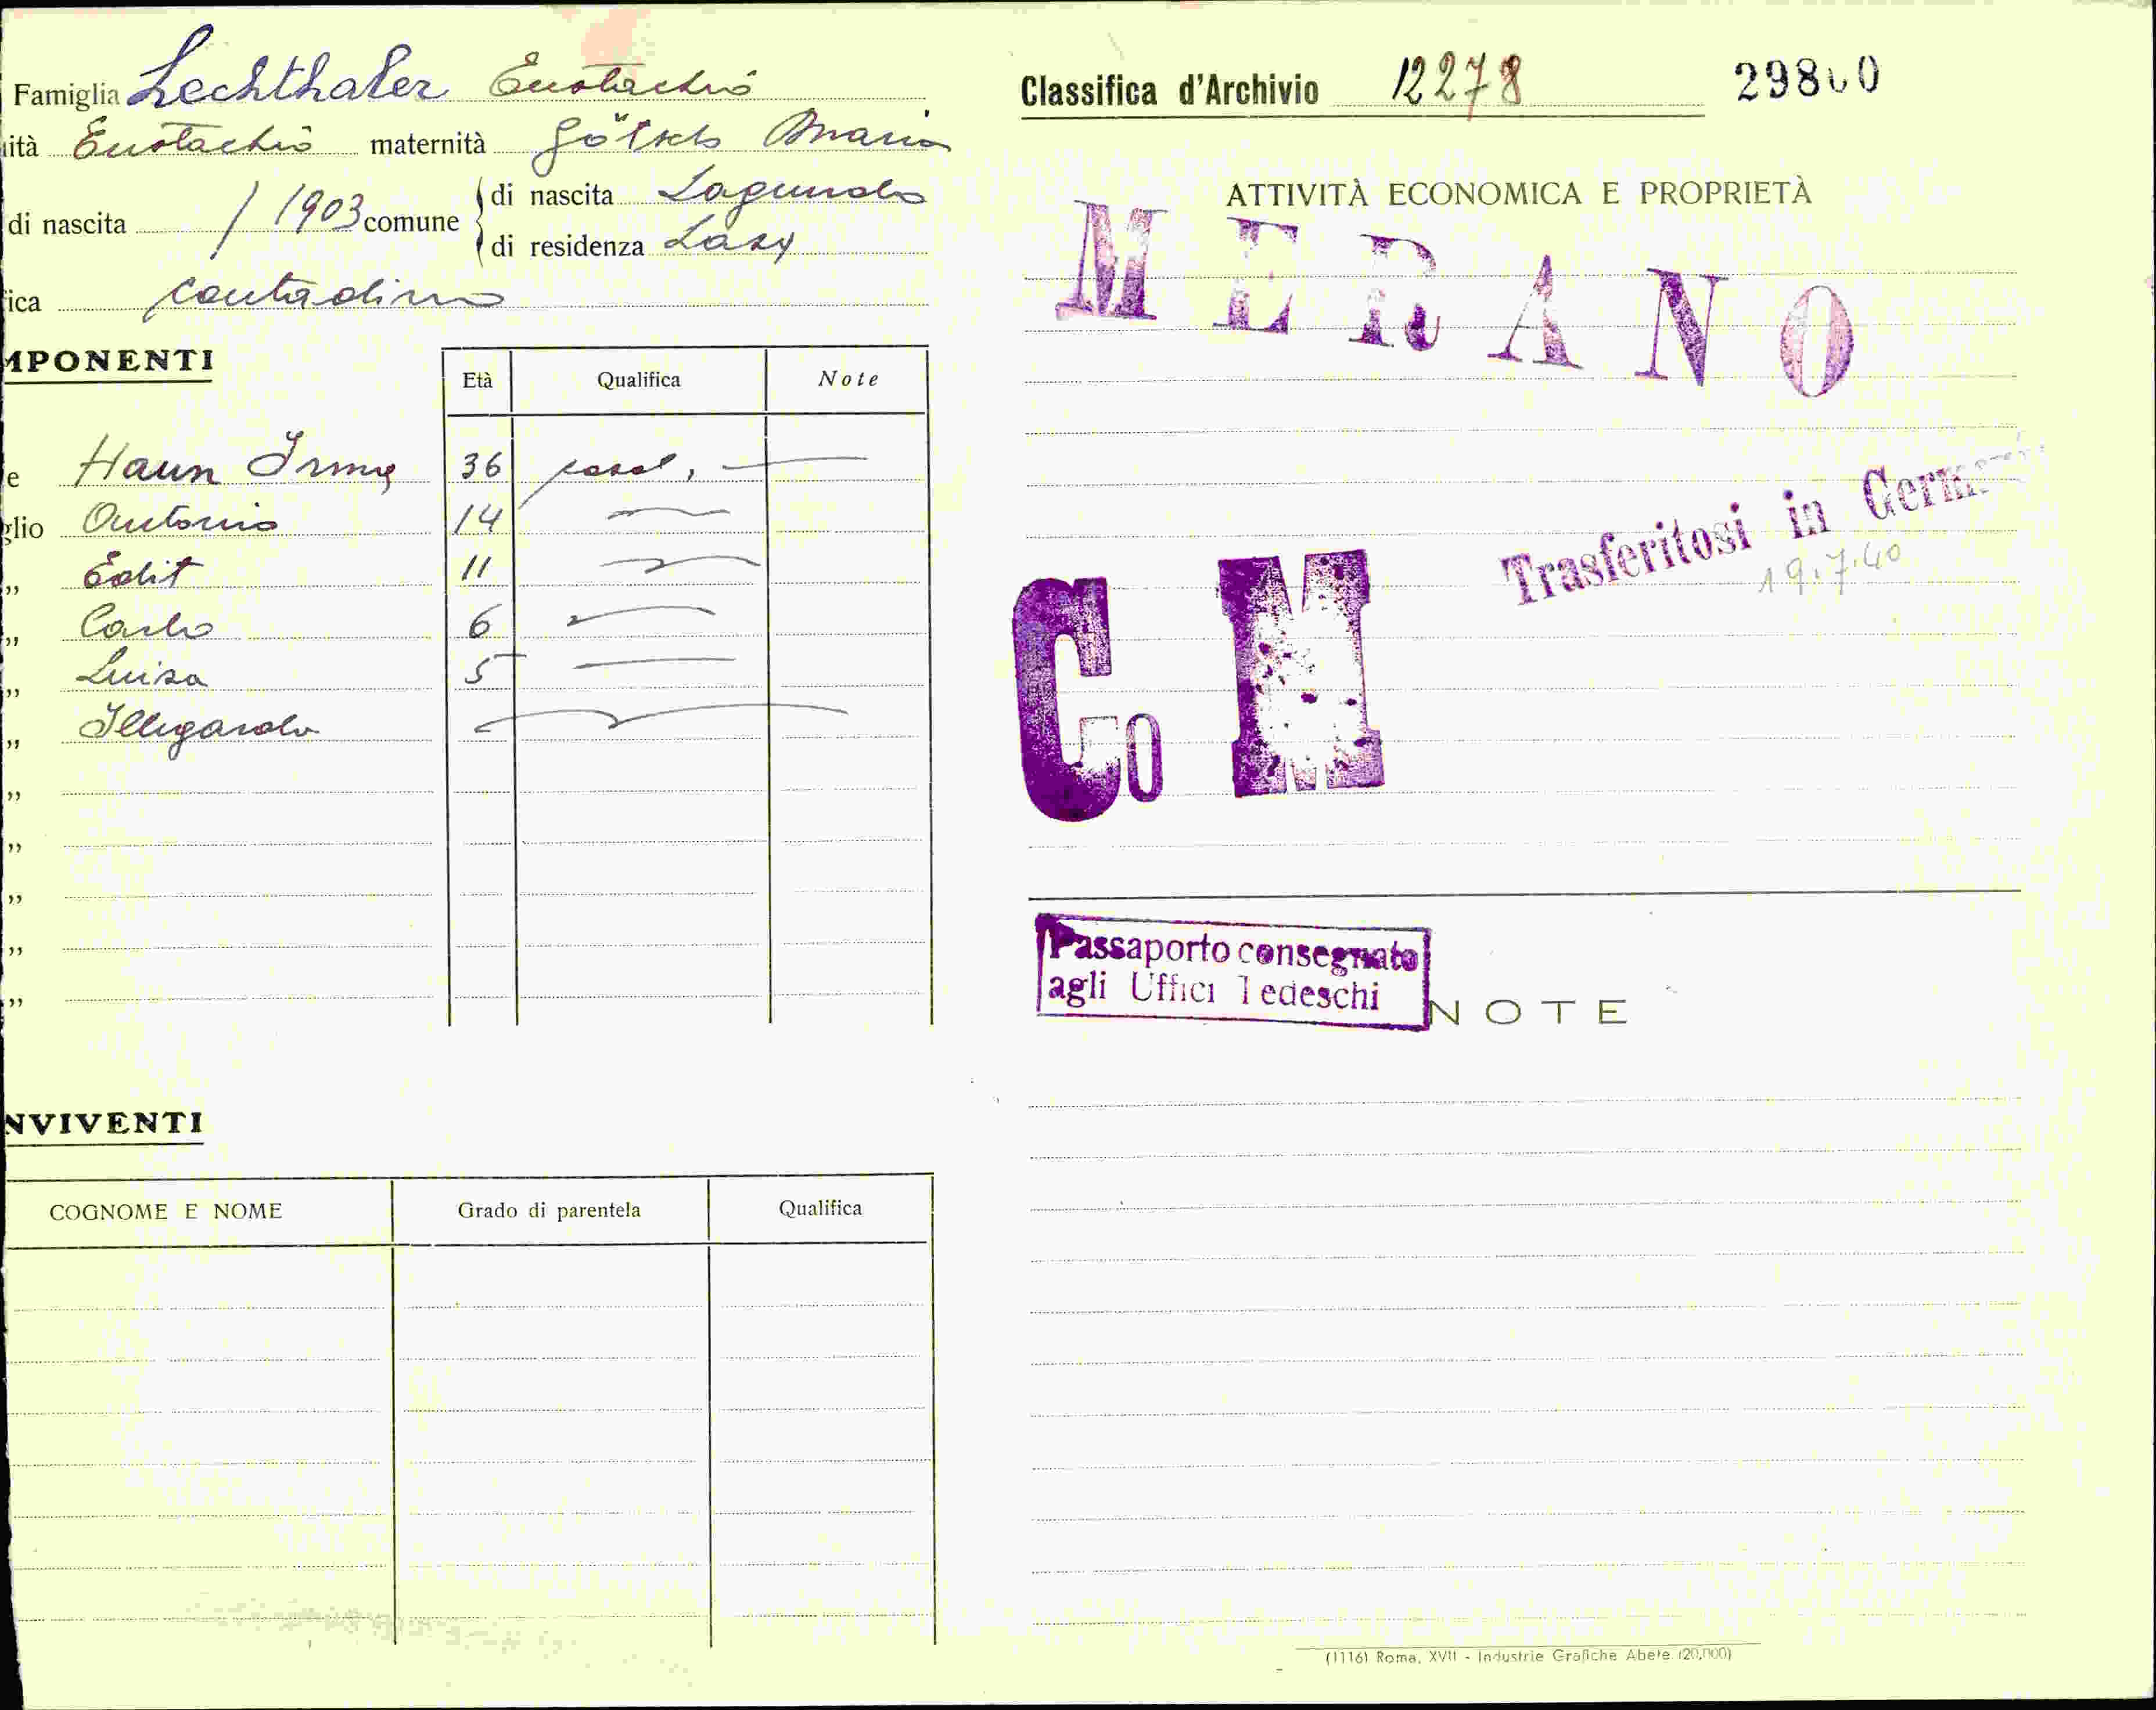 Famiglia Lechthaler Eustachio
ità Eustachio maternità Götsch Maria
di nascita / 1903 comune di nascita Lagundo
di residenza Lasa
ica contadino
MPONENTI
Età Qualifica Note
e Haun Irma 36 casal,
glio Antonio 14
„ Edit 11
„ Carlo 6
„ Luisa 5
„ Illegarda
„
„
„
„
„
NVIVENTI
COGNOME E NOME Grado di parentela Qualifica
Classifica d'Archivio 12278 29800
ATTIVITÀ ECONOMICA E PROPRIETÀ
MERANO
Trasferitosi in Germ
19.7.40
Co M
Passaporto consegnato
agli Uffici Tedeschi
NOTE
(1116) Roma, XVII - Industrie Grafiche Abete (20,000)